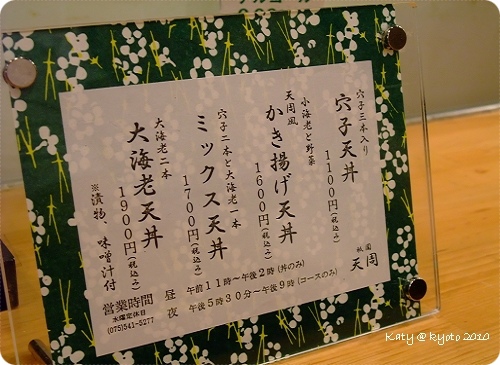 穴子三本入り
穴子天丼
1100円(税込み)
小海老と野菜
天周風
かき揚げ天丼
1600円(税込み)
穴子二本と大海老一本
ミックス天丼
1700円(税込み)
大海老二本
大海老天丼
1900円(税込み)
※漬物、味噌汁付
祇園
天周
営業時間
水曜定休日
(075)541-5277
昼 午前11時～午後2時(丼のみ)
夜 午後5時30分～午後9時(コースのみ)
Katy @ kyoto 2010